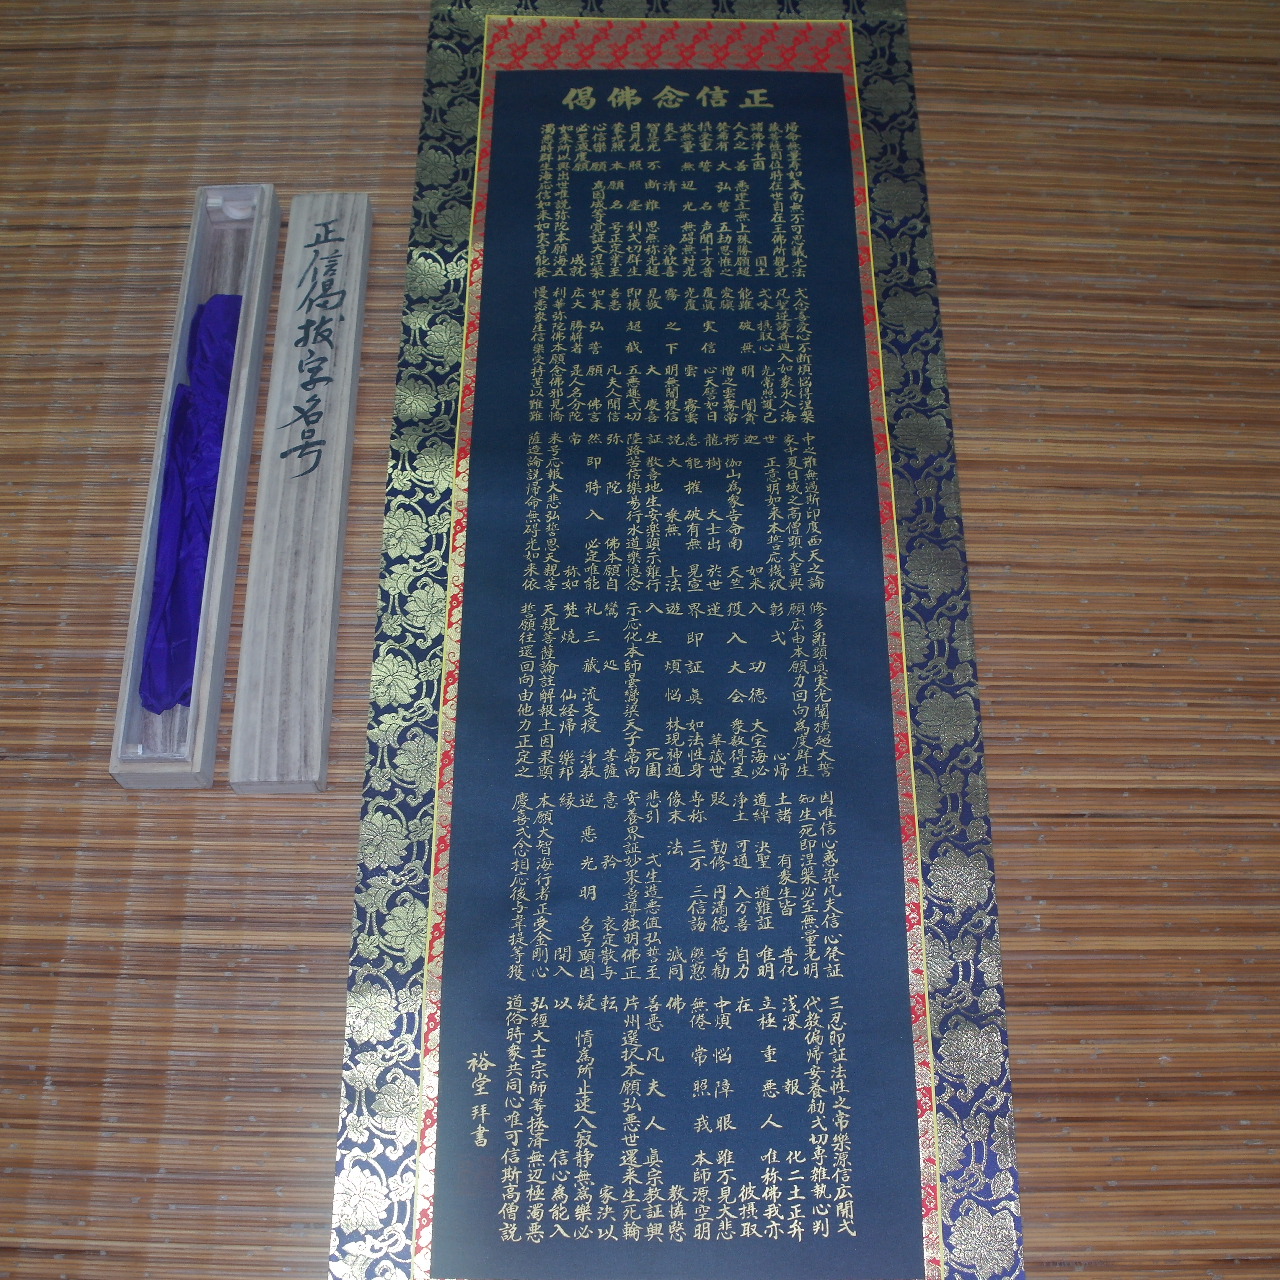 正信念佛偈
帰命無量寿如来南無不可思議光法
蔵菩薩因位時在世自在王佛所覩見
諸佛浄土因国土
人天之善悪建立無上殊勝願超
發希有大弘誓五劫思惟之
摂受重誓名声聞十方普
放無量無辺光無碍無対光
炎王清浄歓喜
智慧光不断難思無称光超
日月光照塵刹弌切群生
蒙光照本願名号正定業至
心信樂願為因成等覚証大涅槃
必至滅度願成就
如来所以興出世唯説弥陀本願海五
濁悪時群生海応信如来如実言能發
弌念喜愛心不断煩悩得涅槃
凡聖逆謗斉廻入如衆水入海
弌味摂取心光常照護已
能雖破無明闇貪
愛瞋憎之雲霧常
覆眞実信心天譬如日
光覆雲霧雲
霧之下明無闇獲信
見敬大慶喜
即横超截五悪趣弌切
善悪凡夫人聞信
如来弘誓願佛言
広大勝解者是人名分陀
利華弥陀佛本願念佛邪見憍
慢悪衆生信樂受持甚以難難
中之難無過斯印度西天之論
家中夏日域之高僧顕大聖興
世正意明如来本誓応機釈
迦如来
楞伽山為衆告命南天竺
龍樹大士出於世
悉能摧破有無見宣
説大乗無上法
証歓喜地生安樂顕示難行
陸路苦信樂易行水道樂憶念
弥陀佛本願自
然即時入必定唯能
常称如
来号応報大悲弘誓恩天親菩
薩造論説帰命無碍光如来依
修多羅顕眞実光闡横超大誓
願広由本願力回向為度群生
彰弌心帰
入功徳大宝海必
獲入大会衆数得至
蓮華蔵世
界即証眞如法性身
遊煩悩林現神通
入生死園
示応化本師曇鸞梁天子常向
鸞処菩薩
礼三蔵流支授浄教
焚焼仙経帰樂邦
天親菩薩論註解報土因果顕
誓願往還回向由他力正定之
因唯信心惑染凡夫信心発証
知生死即涅槃必至無量光明
土諸有衆生皆普化
道綽決聖道難証唯明
浄土可通入万善自力
貶勤修円満徳号勧
専称三不三信誨慇懃
像末法滅同
悲引弌生造悪値弘誓至
安養界証妙果善導独明佛正
意矜哀定散与
逆悪光明名号顕因
縁開入
本願大智海行者正受金剛心
慶喜弌念相応後与韋提等獲
三忍即証法性之常樂源信広開弌
代教偏帰安養勧弌切専雑執心判
浅深報化二土正弁
立極重悪人唯称佛我亦
在彼摂取
中煩悩障眼雖不見大悲
無倦常照我本師源空明
佛教憐愍
善悪凡夫人眞宗教証興
片州選択本願弘悪世還来生死輪
転家決以
疑情為所止速入寂静無為樂必
以信心為能入
弘經大士宗師等拯済無辺極濁悪
道俗時衆共同心唯可信斯高僧説
裕堂拜書
正信偈拔字名号